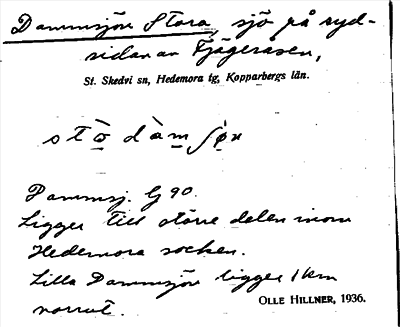 Dammsjön Stora, sjö på syd-
sidan av Tjägeråsen,
St. Skedvi sn, Hedemora tg, Kopparbergs län.
Dammsj. G 90.
Ligger till större delen inom
Hedemora socken.
Lilla Dammsjön ligger 1 km
norrut.
OLLE HILLNER, 1936.